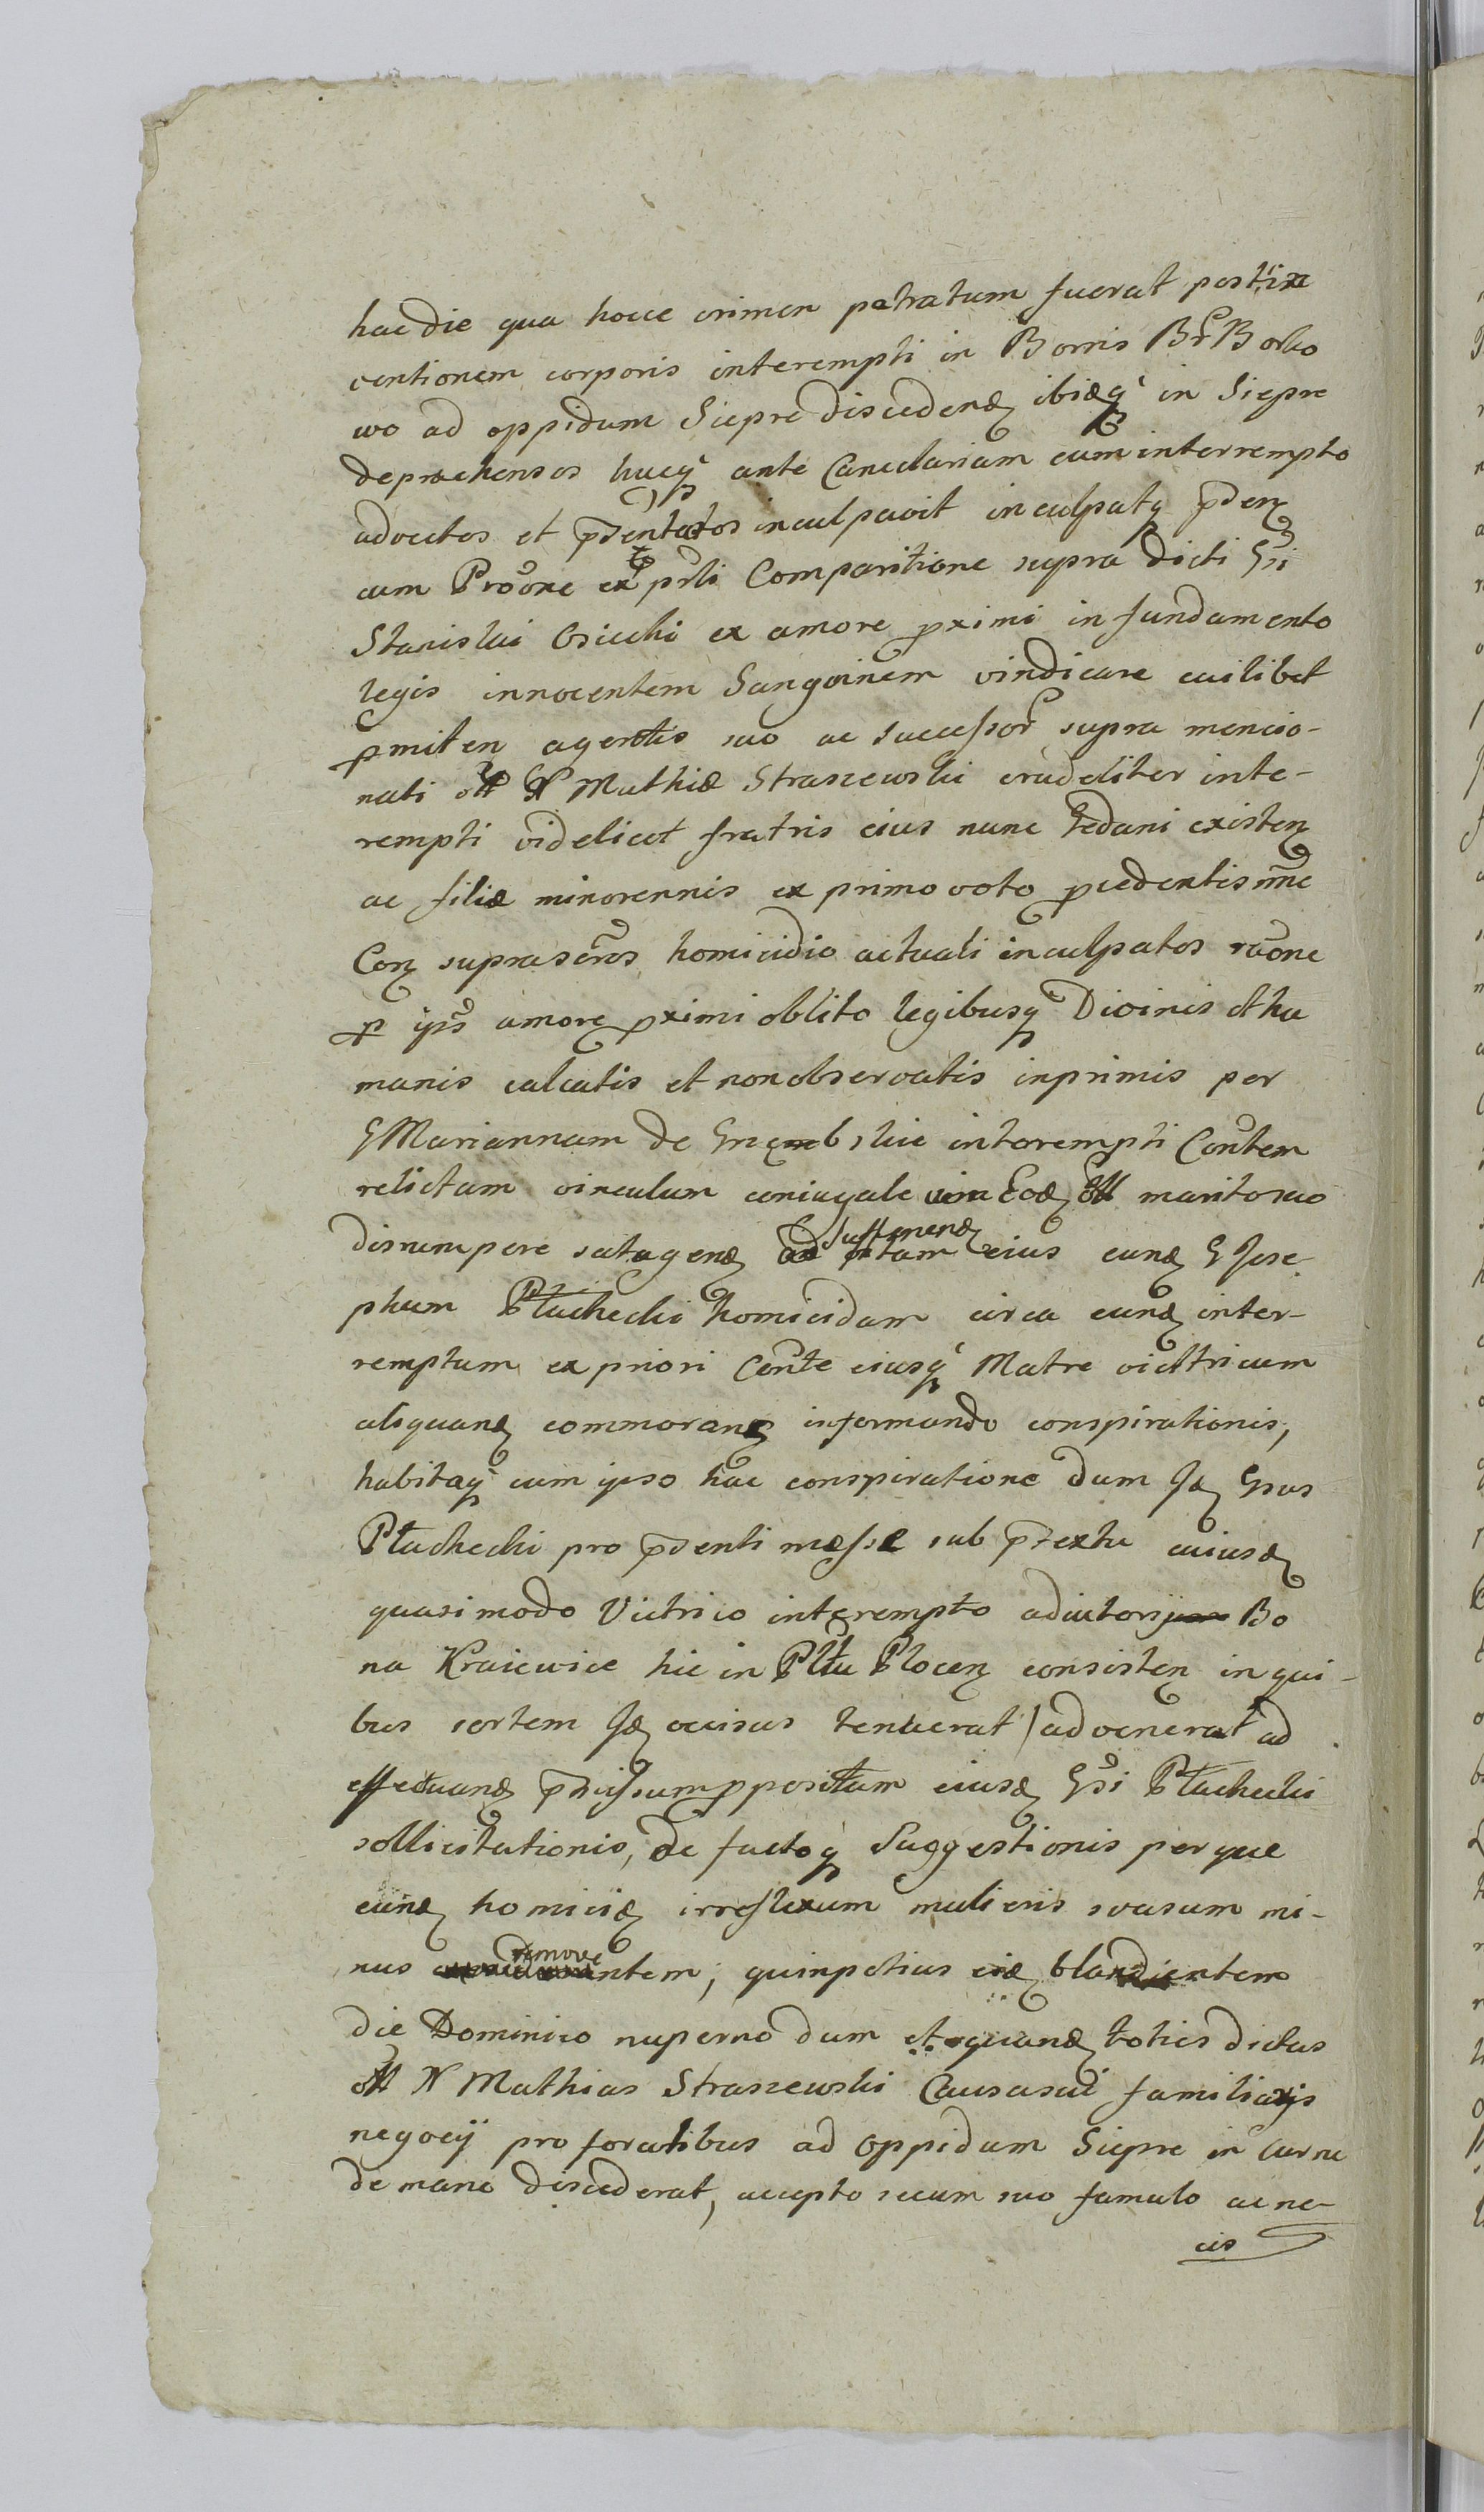 hac die qua hocce crimen patratum fuerat post in
ventionem corporis interempti in Borris Br̃ Borko
wo ad oppidum Siepre discedend ibidq in Siepre
deprachensos hucq ante Cancelariam cum interrempto
advectos et p̃sentatos inculpavit inculpatq p̃den
cum Procõre ex p̃nli Comparitione supra dicti Gsi
Stanislai Osiecki ex amore pximi in fundamento
legis innocentem Sangvinem vindicare cuilibet
pmitten agentis suo ac successor supra mencio-
nati olt N Mathiæ Straszewski crudeliter inte-
rempti videlicet fratris eius nunc Gedani existen
ac filiæ minorennis ex primo voto pcedentis nunc
Con suprascr̃os homicidio actuali inculpatos raõne
p ips̃ amore pximi oblito legibusq Divinis et hu
manis calcatis et non observatis inprimis per
G Mariannam de Gręmbskie interempti Con̄tem
relictam vinculum coniugale cum Eod olt marito suo
disrumpere satagend Suffenend vitam eius eund G Jose
phum Płuchecki homicidam circa eund inter-
remptum ex priori Con̄te eiusq Matre victricum
aliquand commorand informando conspirationis,
habitaq cum ipso hac conspiratione dum Jd Gsus
Płuchecki pro p̃senti messe sub p̃textu cuiusd
quasi modo Victrico interempto adiutorij Bo
na Kraiewice hic in Pltu Plocen consisten in qui-
bus sortem Jd occisus tenuerat / advenerat ad
effectuand p̃missum ppositum eiusd Gsi Płuchecki
sollicitationis, de factoq Suggestionis perque
eund homicid irreflexum mulieris svasum mi-
nus removentem, quinpotius eid blandientem
die Dominico nuperno dum et quand toties dictus
olt N Mathias Straszewski Causa sui familiaris
negocij pro foralibus ad oppidum Siepre in curru
de mane discederat, accepto secum suo famulo ac ne-
cis